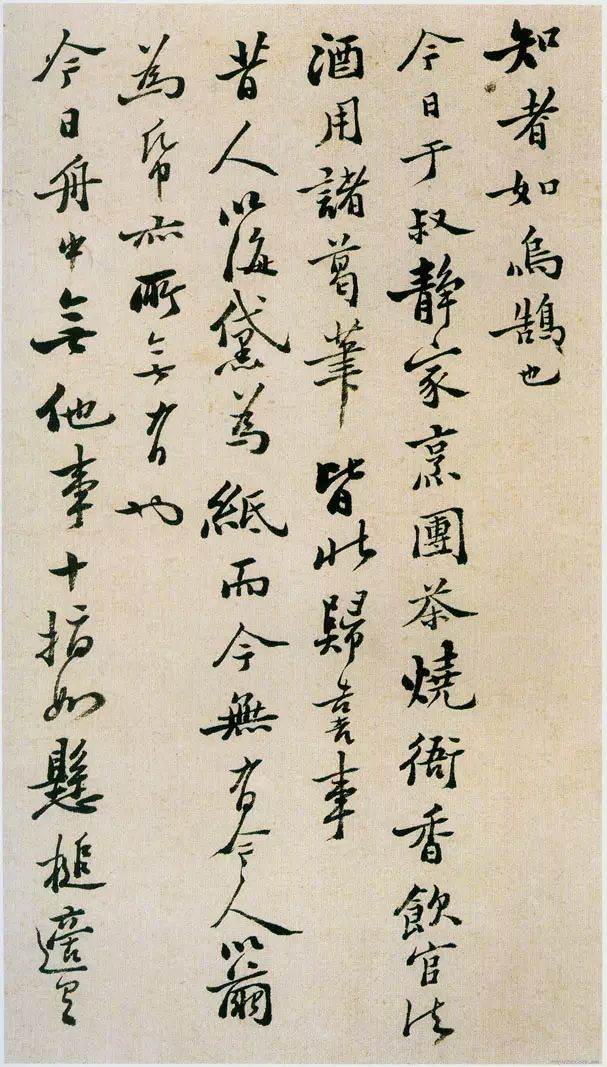 知者如鳴鵠也
今日于叔靜家烹團茶燒衙香飲官法
酒用諸葛筆皆北歸喜事
昔人以海黛為紙而今無有今人以繭
為帋亦所無有也
今日舟中無他事十指如懸槌適